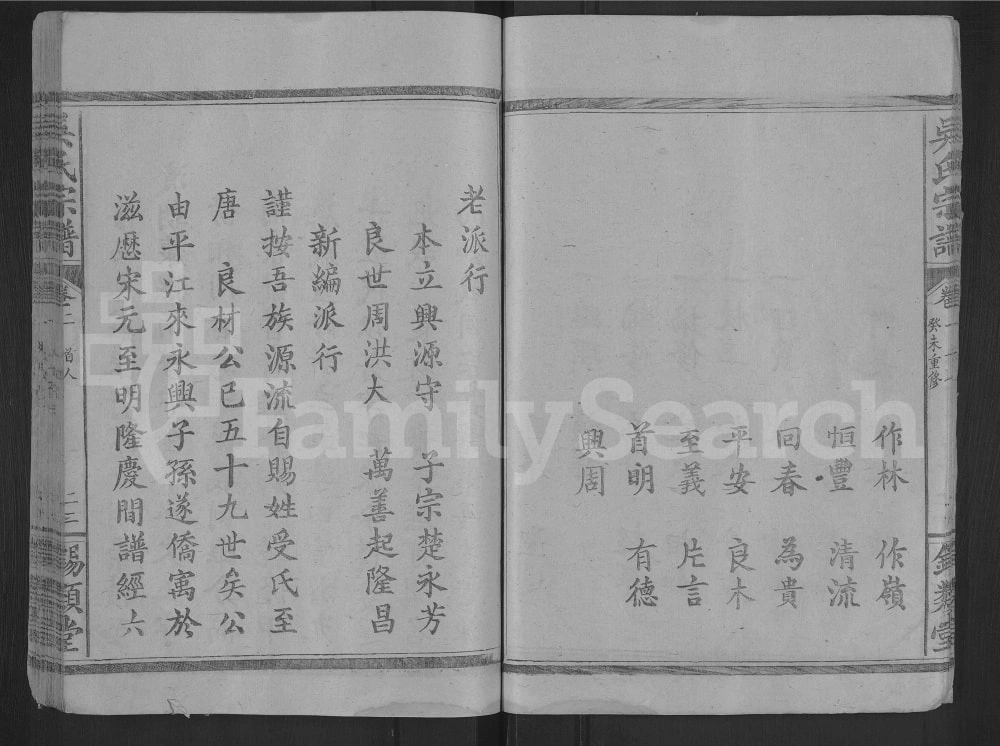 吳氏宗譜
卷二
癸未重修
作林 作嶺
恒豐 清流
回春 為貴
平安 良木
至義 片言
首明 有德
興周
老派行
本立興源守 子宗楚永芳
良世周洪大 萬善起隆昌
新編派行
謹按吾族源流自賜姓受氏至
唐 良材公已五十九世矣公
由平江來永興子孫遂僑寓於
滋歷宋元至明隆慶間譜經六
吳氏宗譜
卷二
二三
錫類堂
FamilySearch